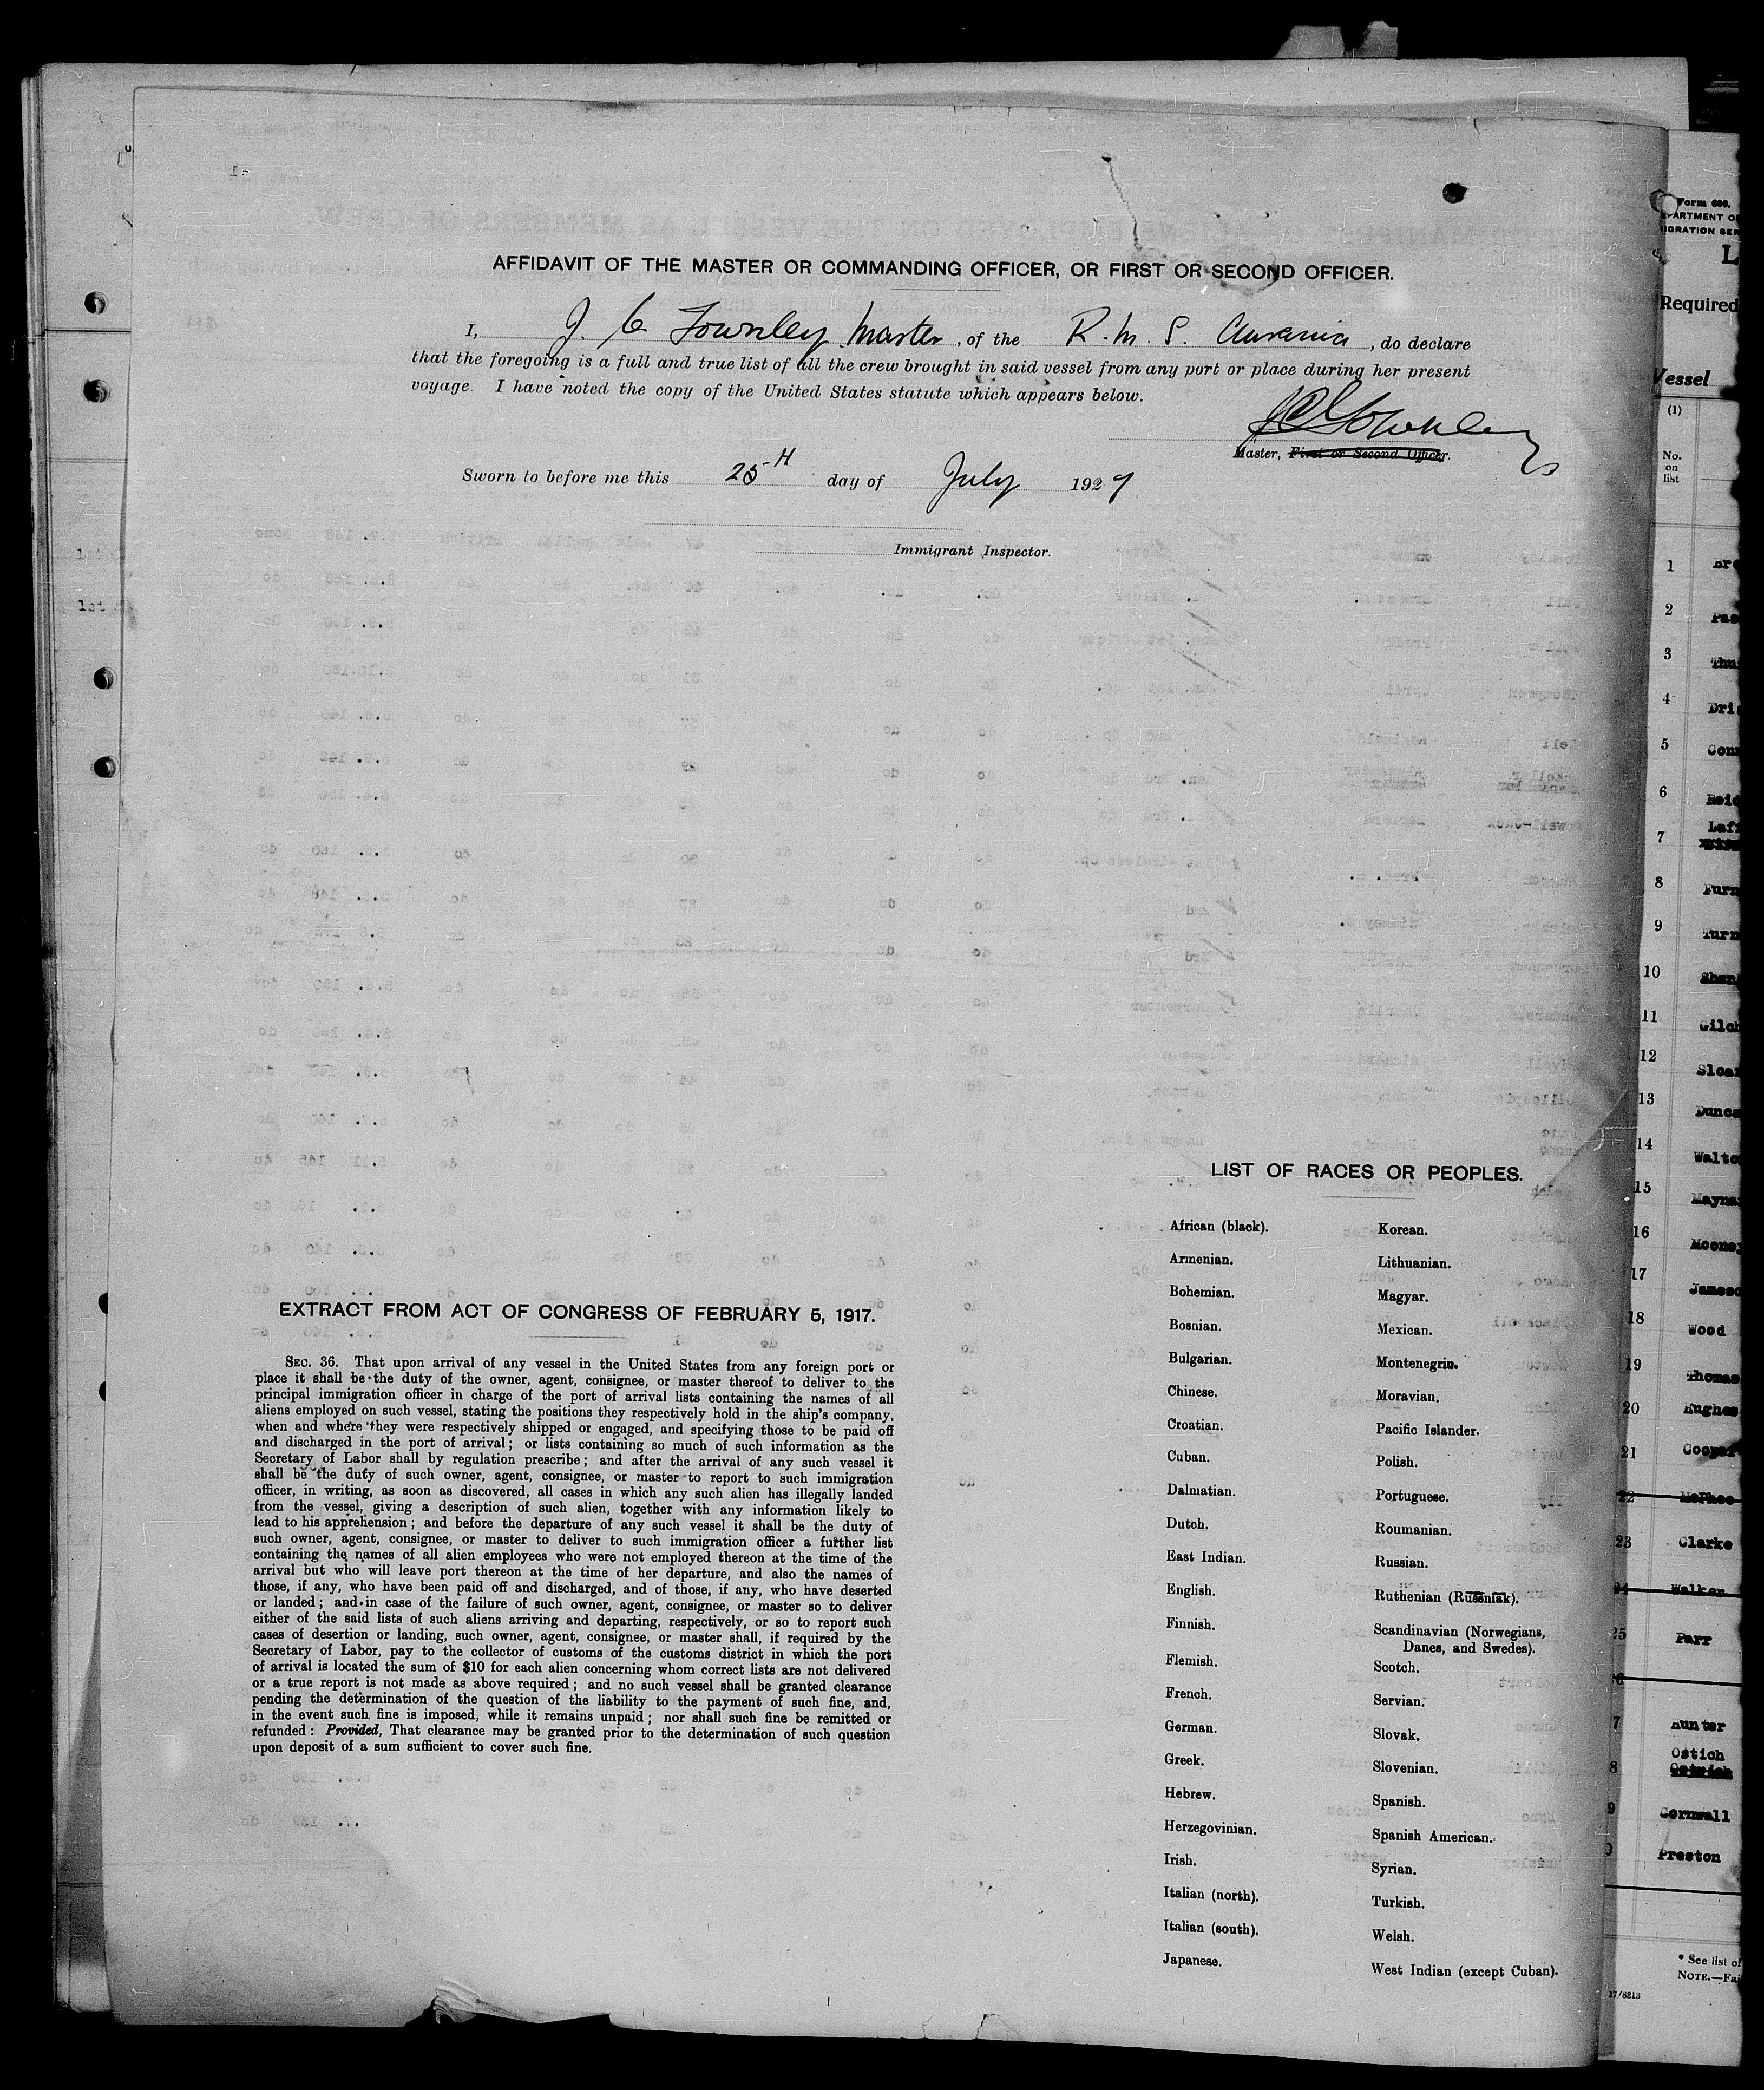 AFFIDAVIT OF THE MASTER OR COMMANDING OFFICER, OR FIRST OR SECOND OFFICER.
I, J. C. Townley Master, of the R. M. S. Ausonia, do declare
that the foregoing is a full and true list of all the crew brought in said vessel from any port or place during her present
voyage. I have noted the copy of the United States statute which appears below.
JCTownley
Master, First or Second Officer.
Sworn to before me this 25TH day of July 1927
Immigrant Inspector.
EXTRACT FROM ACT OF CONGRESS OF FEBRUARY 5, 1917.
SEC. 36. That upon arrival of any vessel in the United States from any foreign port or
place it shall be the duty of the owner, agent, consignee, or master thereof to deliver to the
principal immigration officer in charge of the port of arrival lists containing the names of all
aliens employed on such vessel, stating the positions they respectively hold in the ship's company,
when and where they were respectively shipped or engaged, and specifying those to be paid off
and discharged in the port of arrival; or lists containing so much of such information as the
Secretary of Labor shall by regulation prescribe; and after the arrival of any such vessel it
shall be the duty of such owner, agent, consignee, or master to report to such immigration
officer, in writing, as soon as discovered, all cases in which any such alien has illegally landed
from the vessel, giving a description of such alien, together with any information likely to
lead to his apprehension; and before the departure of any such vessel it shall be the duty of
such owner, agent, consignee, or master to deliver to such immigration officer a further list
containing the names of all alien employees who were not employed thereon at the time of the
arrival but who will leave port thereon at the time of her departure, and also the names of
those, if any, who have been paid off and discharged, and of those, if any, who have deserted
or landed; and in case of the failure of such owner, agent, consignee, or master so to deliver
either of the said lists of such aliens arriving and departing, respectively, or so to report such
cases of desertion or landing, such owner, agent, consignee, or master shall, if required by the
Secretary of Labor, pay to the collector of customs of the customs district in which the port
of arrival is located the sum of $10 for each alien concerning whom correct lists are not delivered
or a true report is not made as above required; and no such vessel shall be granted clearance
pending the determination of the question of the liability to the payment of such fine, and,
in the event such fine is imposed, while it remains unpaid; nor shall such fine be remitted or
refunded: Provided, That clearance may be granted prior to the determination of such question
upon deposit of a sum sufficient to cover such fine.
LIST OF RACES OR PEOPLES.
African (black).
Armenian.
Bohemian.
Bosnian.
Bulgarian.
Chinese.
Croatian.
Cuban.
Dalmatian.
Dutch.
East Indian.
English.
Finnish.
Flemish.
French.
German.
Greek.
Hebrew.
Herzegovinian.
Irish.
Italian (north).
Italian (south).
Japanese.
Korean.
Lithuanian.
Magyar.
Mexican.
Montenegrin.
Moravian.
Pacific Islander.
Polish.
Portuguese.
Roumanian.
Russian.
Ruthenian (Russniak).
Scandinavian (Norwegians,
Danes, and Swedes).
Scotch.
Servian.
Slovak.
Slovenian.
Spanish.
Spanish American.
Syrian.
Turkish.
Welsh.
West Indian (except Cuban).
Form 680.
Required
Vessel
(1)
No.
on
list
1
2
3
4
5
6
7
8
9
10
11
12
13
14
15
16
17
18 Wood
19 Thomas
20 Hughes
21 Cooper
22 McPhee
23 Clarke
Walker
Parr
Hunter
Ostich
Cornwall
Preston
* See list of
NOTE.—Fai
17/8213